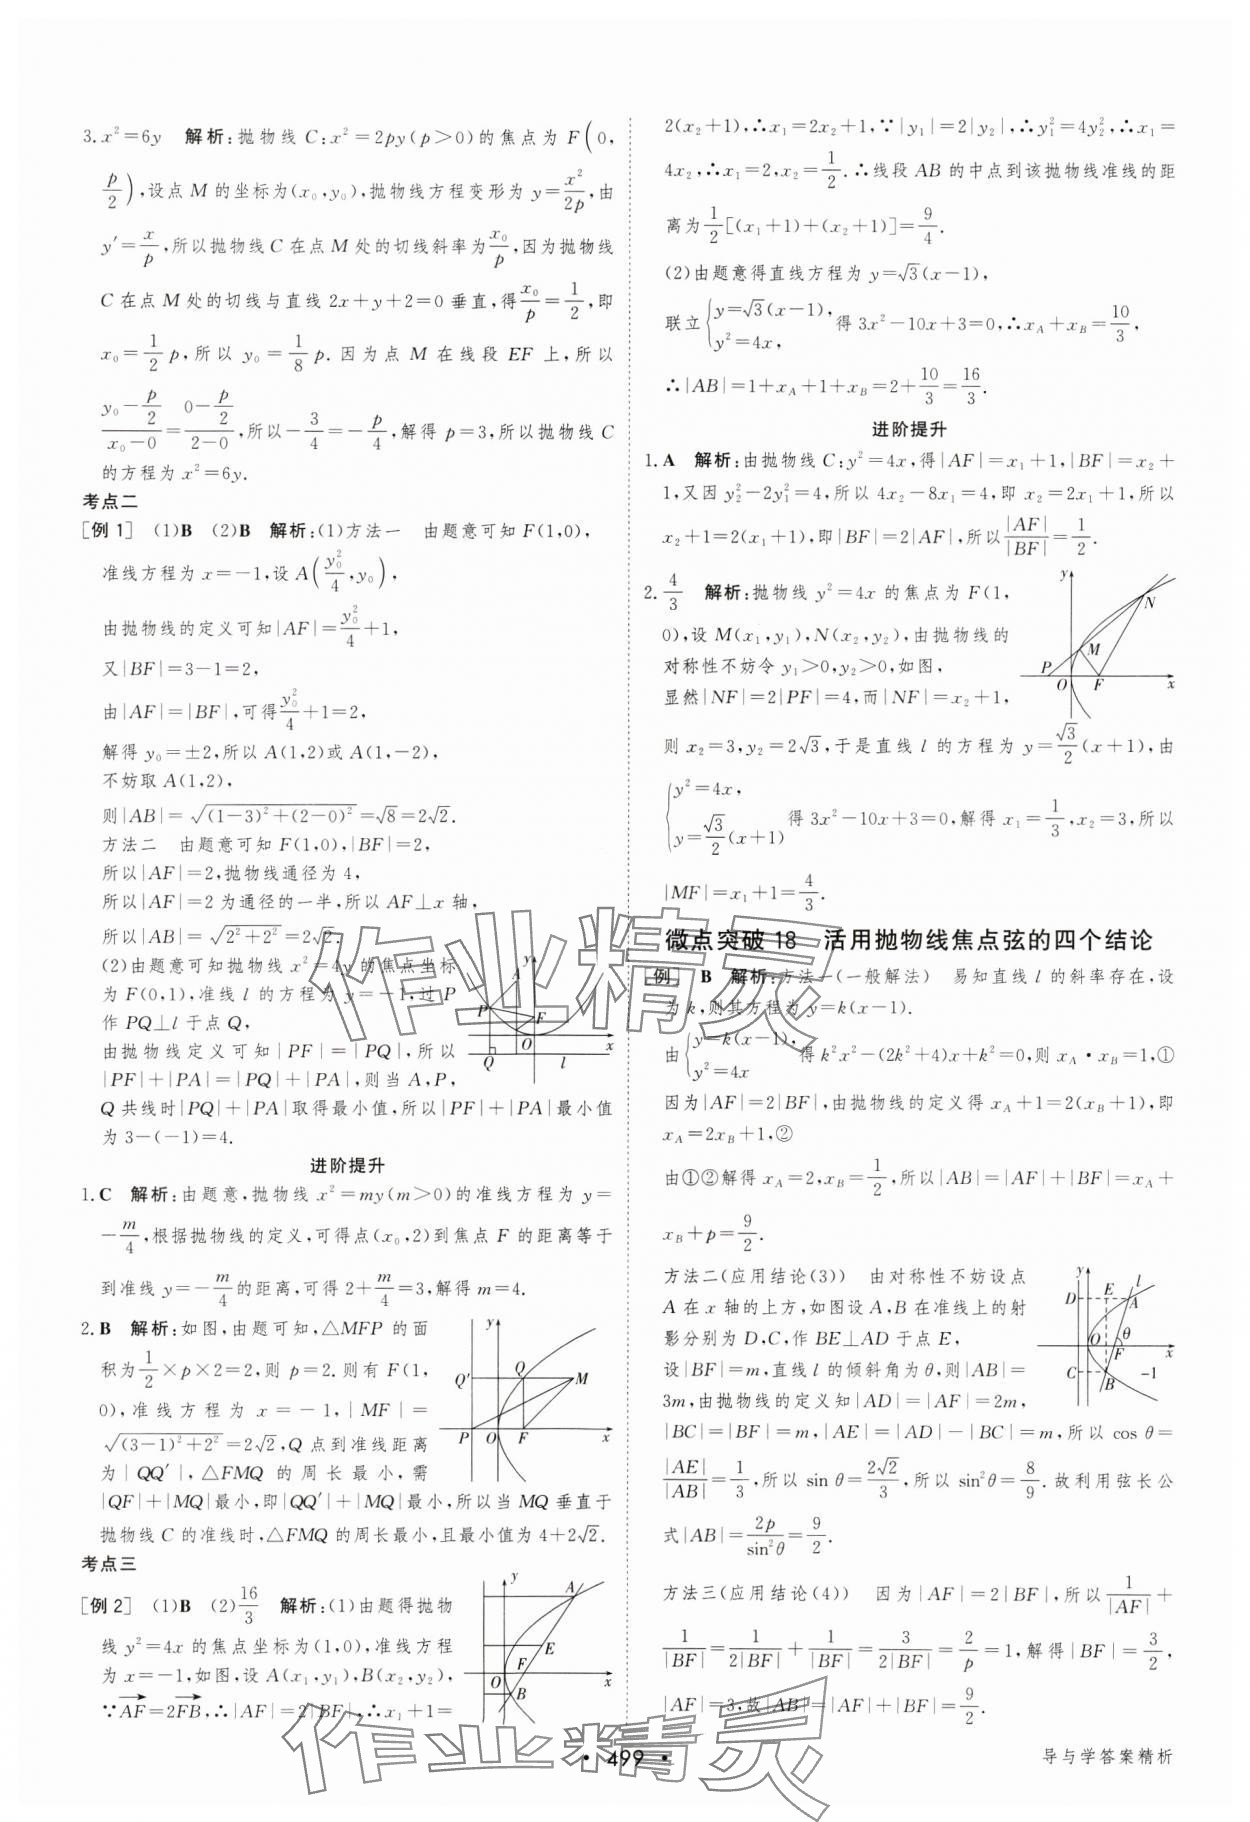 3. x²=6y 解析:抛物线 C:x²=2py(p>0)的焦点为 F(0,
p/2),设点 M 的坐标为(x₀,y₀),抛物线方程变形为 y=x²/2p,由
y′=x/p,所以抛物线 C 在点 M 处的切线斜率为x₀/p,因为抛物线
C 在点 M 处的切线与直线 2x+y+2=0 垂直,得x₀/p=1/2,即
x₀=1/2 p,所以 y₀=1/8 p. 因为点 M 在线段 EF 上,所以
(y₀-p/2)/(x₀-0)=(0-p/2)/(2-0),所以-3/4=-p/4,解得 p=3,所以抛物线 C
的方程为 x²=6y.
考点二
[例 1] (1)B (2)B 解析:(1)方法一 由题意可知 F(1,0),
准线方程为 x=-1,设 A(y₀²/4,y₀),
由抛物线的定义可知|AF|=y₀²/4+1,
又|BF|=3-1=2,
由|AF|=|BF|,可得y₀²/4+1=2,
解得 y₀=±2,所以 A(1,2)或 A(1,-2),
不妨取 A(1,2),
则|AB|=√((1-3)²+(2-0)²)=√8=2√2.
方法二 由题意可知 F(1,0),|BF|=2,
所以|AF|=2,抛物线通径为 4,
所以|AF|=2 为通径的一半,所以 AF⊥x 轴,
所以|AB|=√(2²+2²)=2√2.
(2)由题意可知抛物线 x²=4y 的焦点坐标
为 F(0,1),准线 l 的方程为 y=-1,过 P
作 PQ⊥l 于点 Q,
由抛物线定义可知|PF|=|PQ|,所以
|PF|+|PA|=|PQ|+|PA|,则当 A,P,
Q 共线时|PQ|+|PA|取得最小值,所以|PF|+|PA|最小值
为 3-(-1)=4.
y
A
P
F
O
x
Q
l
进阶提升
1. C 解析:由题意,抛物线 x²=my(m>0)的准线方程为 y=
-m/4,根据抛物线的定义,可得点(x₀,2)到焦点 F 的距离等于
到准线 y=-m/4的距离,可得 2+m/4=3,解得 m=4.
2. B 解析:如图,由题可知,△MFP 的面
积为1/2×p×2=2,则 p=2. 则有 F(1,
0),准线方程为 x=-1,|MF|=
√((3-1)²+2²)=2√2,Q 点到准线距离
为|QQ′|,△FMQ 的周长最小,需
|QF|+|MQ|最小,即|QQ′|+|MQ|最小,所以当 MQ 垂直于
抛物线 C 的准线时,△FMQ 的周长最小,且最小值为 4+2√2.
y
Q′
Q
M
P
O
F
x
考点三
[例 2] (1)B (2)16/3 解析:(1)由题得抛物
线 y²=4x 的焦点坐标为(1,0),准线方程
为 x=-1,如图,设 A(x₁,y₁),B(x₂,y₂),
∵AF=2FB,∴|AF|=2|BF|,∴x₁+1=
y
A
E
F
O
B
x
2(x₂+1),∴x₁=2x₂+1,∵|y₁|=2|y₂|,∴y₁²=4y₂²,∴x₁=
4x₂,∴x₁=2,x₂=1/2.∴线段 AB 的中点到该抛物线准线的距
离为1/2[(x₁+1)+(x₂+1)]=9/4.
(2)由题意得直线方程为 y=√3(x-1),
联立{y=√3(x-1), y²=4x, 得 3x²-10x+3=0,∴x_A+x_B=10/3,
∴|AB|=1+x_A+1+x_B=2+10/3=16/3.
进阶提升
1. A 解析:由抛物线 C:y²=4x,得|AF|=x₁+1,|BF|=x₂+
1,又因 y₂²-2y₁²=4,所以 4x₂-8x₁=4,即 x₂=2x₁+1,所以
x₂+1=2(x₁+1),即|BF|=2|AF|,所以|AF|/|BF|=1/2.
2. 4/3 解析:抛物线 y²=4x 的焦点为 F(1,
0),设 M(x₁,y₁),N(x₂,y₂),由抛物线的
对称性不妨令 y₁>0,y₂>0,如图,
显然|NF|=2|PF|=4,而|NF|=x₂+1,
y
N
M
P
O
F
x
则 x₂=3,y₂=2√3,于是直线 l 的方程为 y=√3/2(x+1),由
{y²=4x, y=√3/2(x+1) 得 3x²-10x+3=0,解得 x₁=1/3,x₂=3,所以
|MF|=x₁+1=4/3.
微点突破 18 活用抛物线焦点弦的四个结论
[例] B 解析:方法一(一般解法) 易知直线 l 的斜率存在,设
为 k,则其方程为 y=k(x-1).
由{y=k(x-1), y²=4x 得 k²x²-(2k²+4)x+k²=0,则 x_A·x_B=1,①
因为|AF|=2|BF|,由抛物线的定义得 x_A+1=2(x_B+1),即
x_A=2x_B+1,②
由①②解得 x_A=2,x_B=1/2,所以|AB|=|AF|+|BF|=x_A+
x_B+p=9/2.
方法二(应用结论(3)) 由对称性不妨设点
A 在 x 轴的上方,如图设 A,B 在准线上的射
影分别为 D,C,作 BE⊥AD 于点 E,
设|BF|=m,直线 l 的倾斜角为 θ,则|AB|=
3m,由抛物线的定义知|AD|=|AF|=2m,
|BC|=|BF|=m,|AE|=|AD|-|BC|=m,所以 cos θ=
|AE|/|AB|=1/3,所以 sin θ=2√2/3,所以 sin²θ=8/9. 故利用弦长公
式|AB|=2p/sin²θ=9/2.
y
l
D
E
A
θ
O
F
x
C
B
-1
方法三(应用结论(4)) 因为|AF|=2|BF|,所以1/|AF|+
1/|BF|=1/2|BF|+1/|BF|=3/2|BF|=2/p=1,解得|BF|=3/2,
|AF|=3,故|AB|=|AF|+|BF|=9/2.
作业精灵
作业精灵
· 499 ·
导与学答案精析